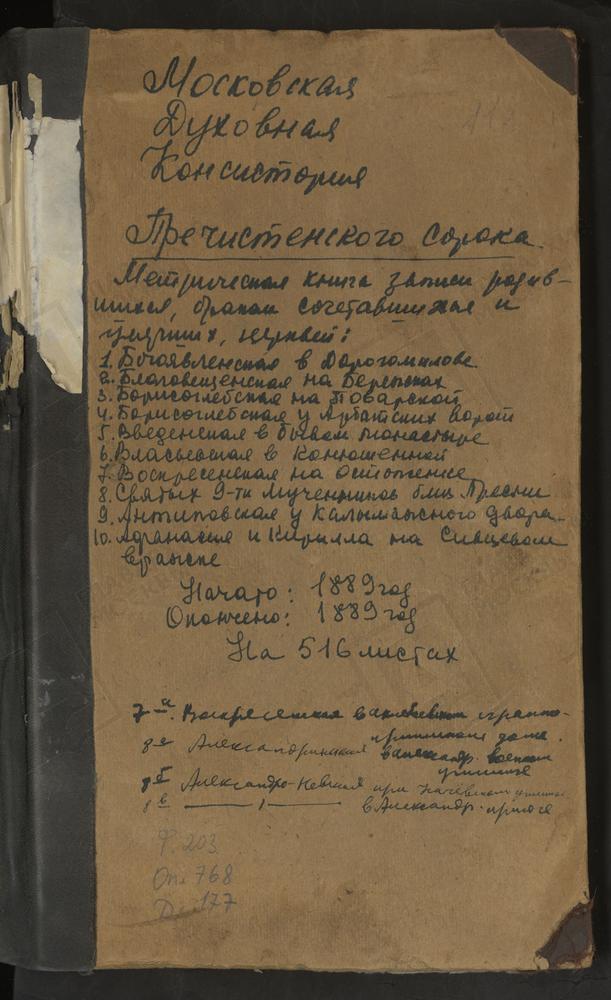 Московская
Духовная
Консистория
Пречистенского сорока.
Метрическая книга записи родив-
шихся, браком сочетавшихся и
умерших, церквей:
1. Богоявленская в Дорогомилове
2. Благовещенская на Бережках
3. Борисоглебская на Поварской
4. Борисоглебская у Арбатских ворот
5. Введенская в бывшем монастыре
6. Власьевская в Конюшенной
7. Воскресенская на Остоженке
8. Святых 9-ти Мучеников близ Пресни
9. Антиповская у Калымажного двора
10. Афанасия и Кирилла на Сивцевом
вражке
Начато: 1889 год
Окончено: 1889 год
На 516 листах
7-а. Воскресенская
доме.
8-а Александринская в Александр. военном
училище
8б Александро-Невская при училище
8в —— " —— в Александр. приюте
Ф. 203
Оп. 768
Д. 177